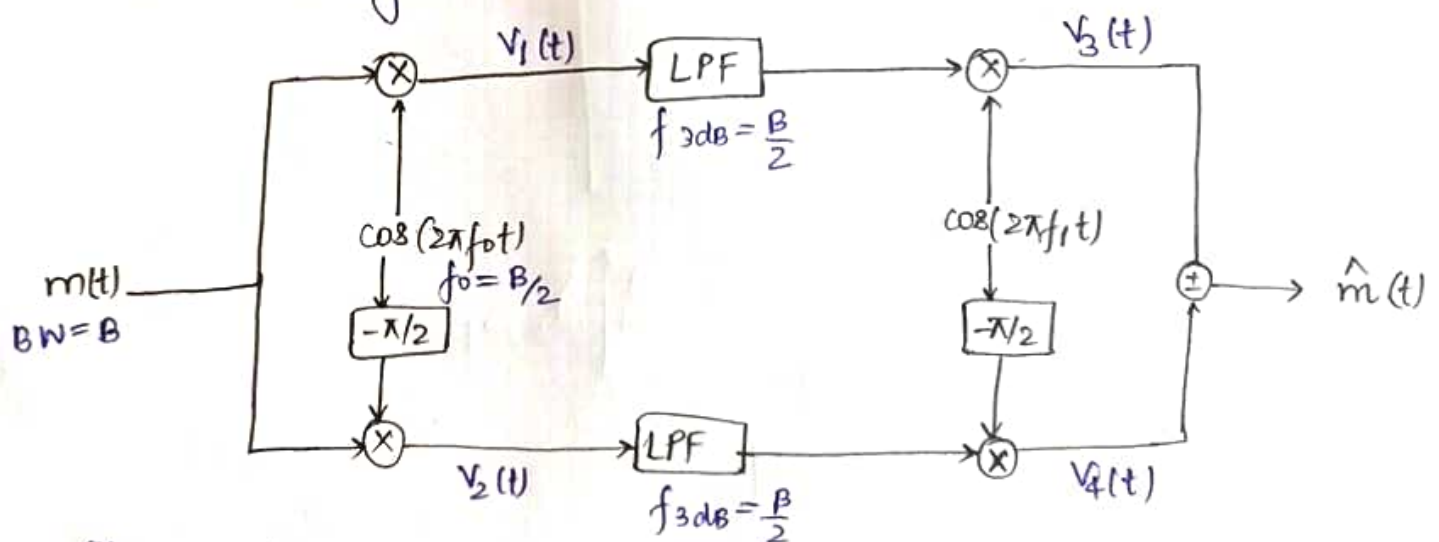 V₁(t)
LPF
f 3dB = B/2
V₃(t)
cos(2πf₀t)
f₀ = B/2
cos(2πf₁t)
m(t)
BW = B
-π/2
-π/2
±
m̂(t)
V₂(t)
LPF
f3dB = B/2
V₄(t)